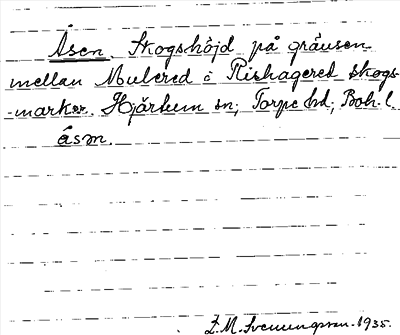 Åsen. Skogshöjd på gränsen
mellan Mulered o Rishagered skogs-
-marker. Hjärtum sn; Torpe hd; Boh. l.
åsm.
Z.M. Svenungsson. 1935.